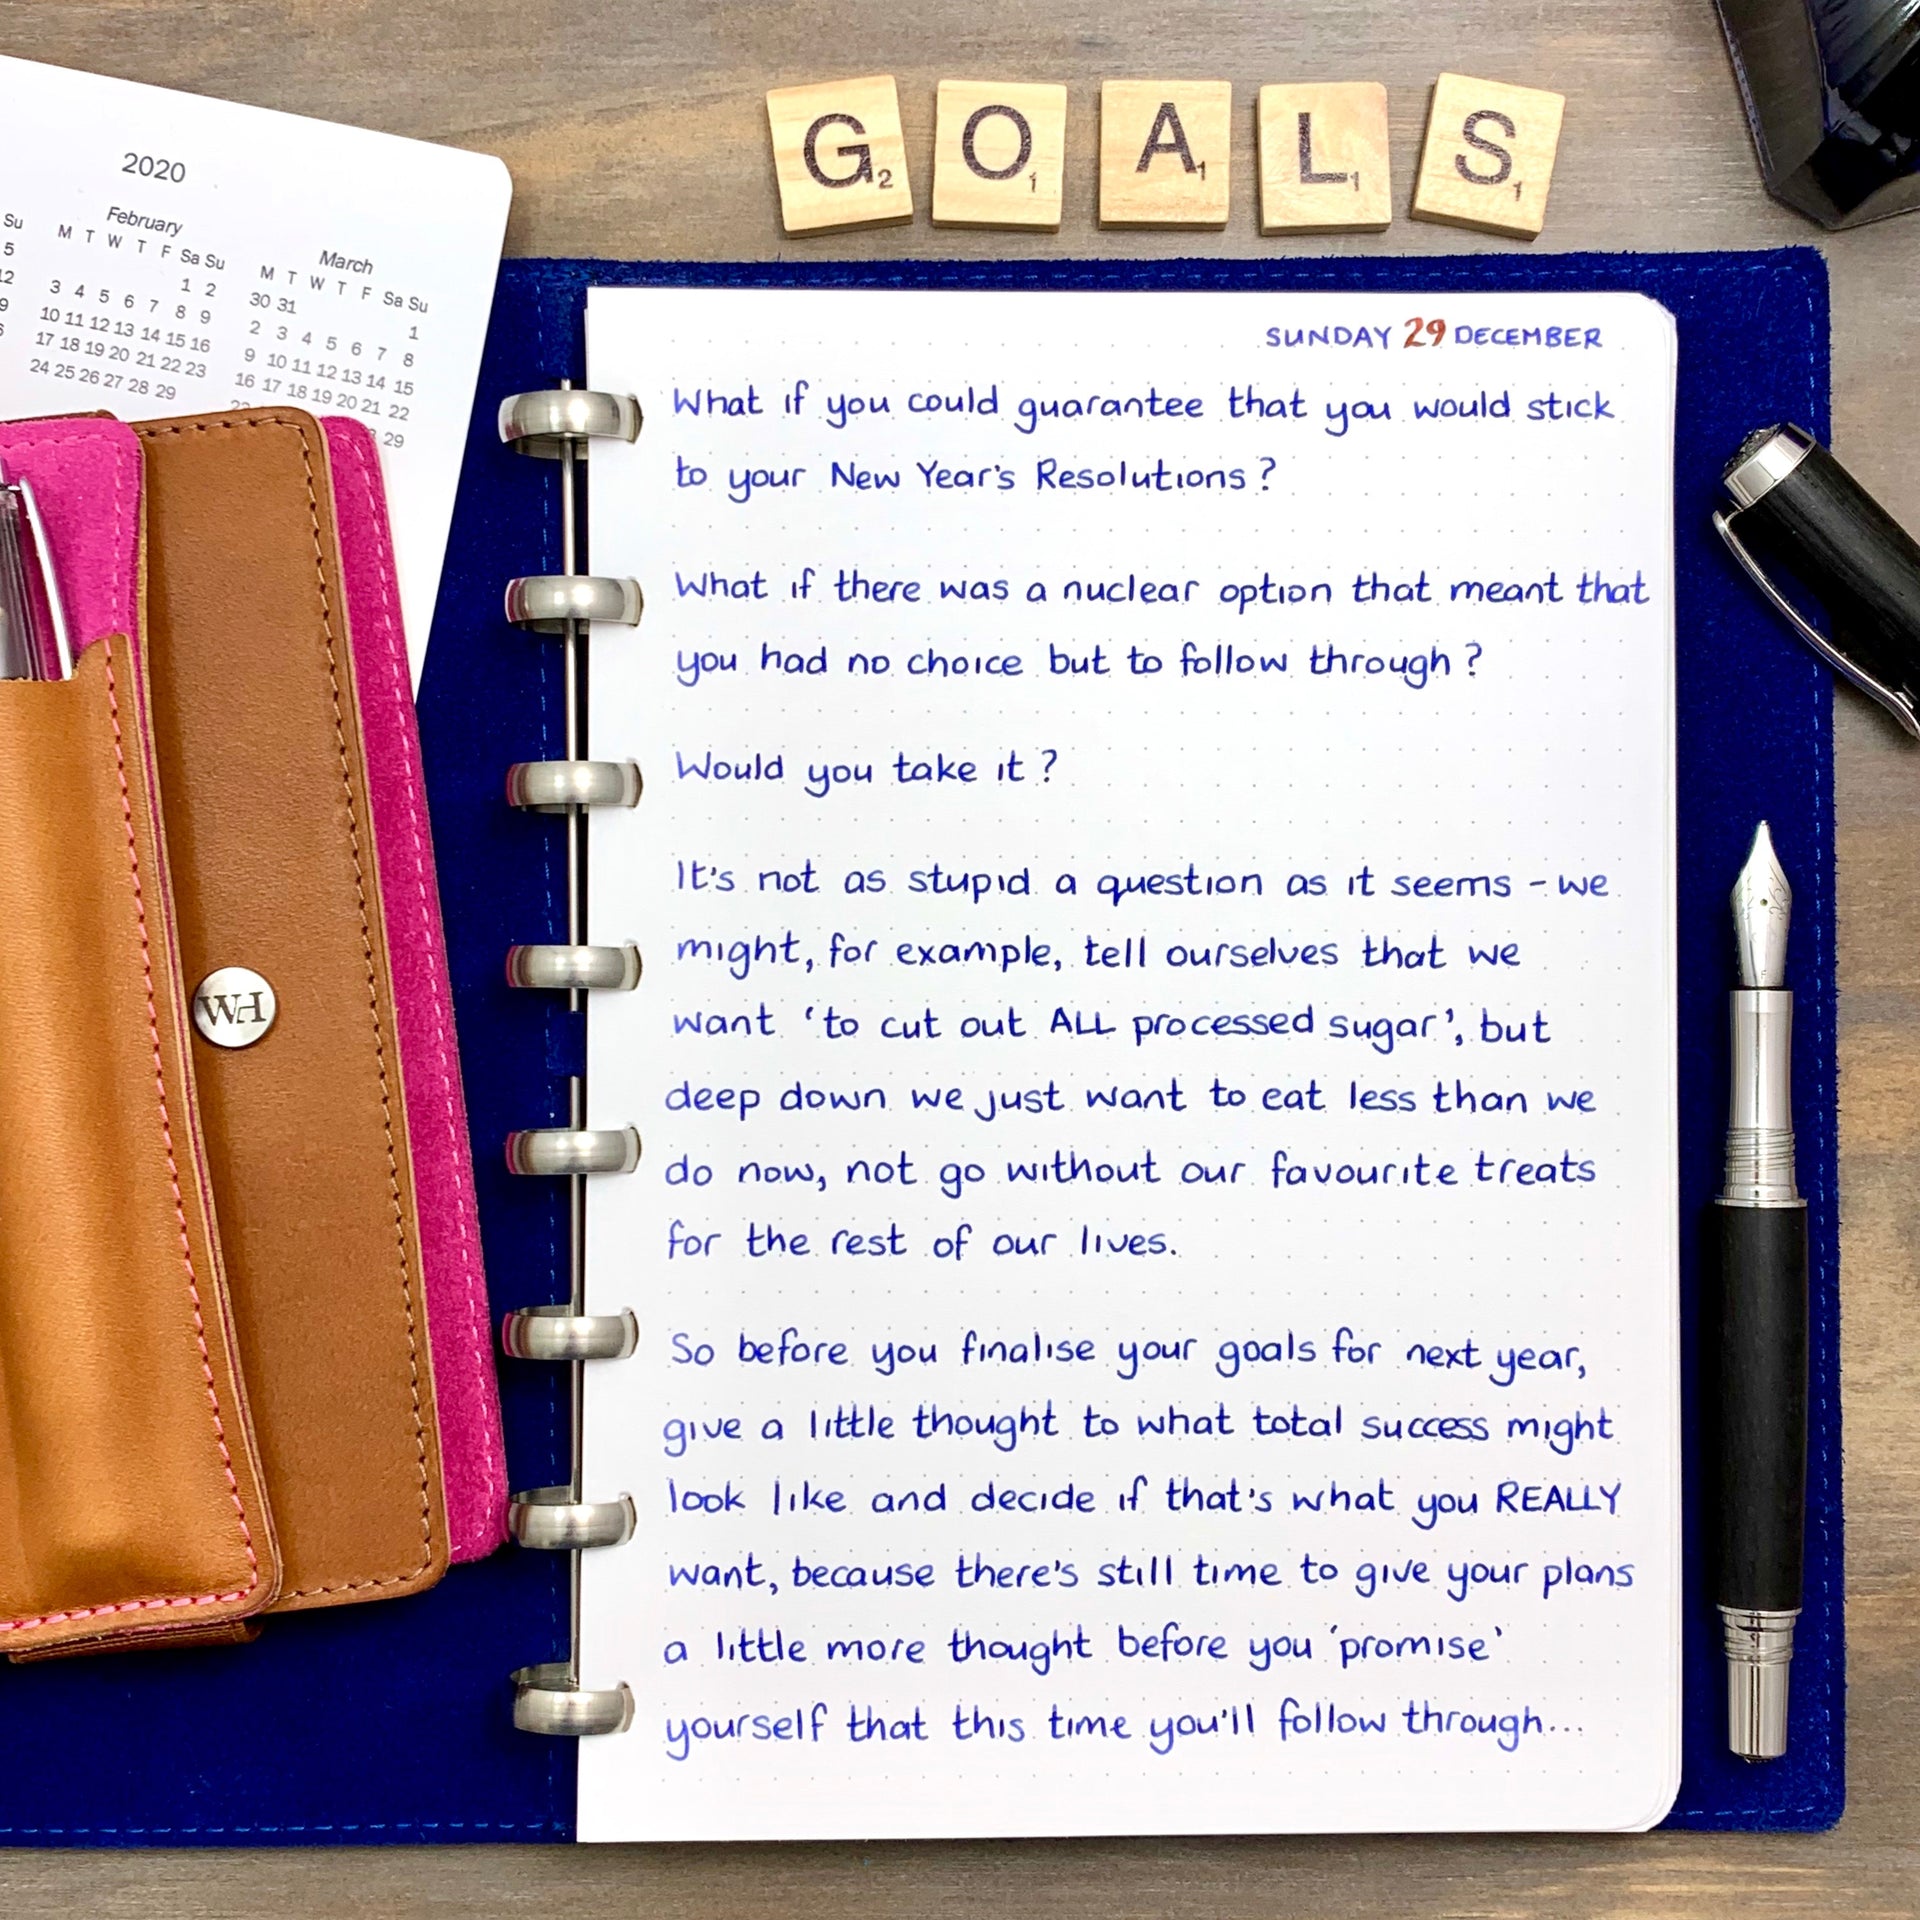 GOALS
G2 O1 A1 L1 S1
2020
February
M T W T F Sa Su
1 2
3 4 5 6 7 8 9
10 11 12 13 14 15 16
17 18 19 20 21 22 23
24 25 26 27 28 29
March
M T W T F Sa Su
30 31 1
2 3 4 5 6 7 8
9 10 11 12 13 14 15
16 17 18 19 20 21 22
29
Su
5
12
WH
SUNDAY 29 DECEMBER
What if you could guarantee that you would stick
to your New Year's Resolutions?
What if there was a nuclear option that meant that
you had no choice but to follow through?
Would you take it?
It's not as stupid a question as it seems - we
might, for example, tell ourselves that we
want 'to cut out ALL processed sugar', but
deep down we just want to eat less than we
do now, not go without our favourite treats
for the rest of our lives.
So before you finalise your goals for next year,
give a little thought to what total success might
look like and decide if that's what you REALLY
want, because there's still time to give your plans
a little more thought before you 'promise'
yourself that this time you'll follow through...